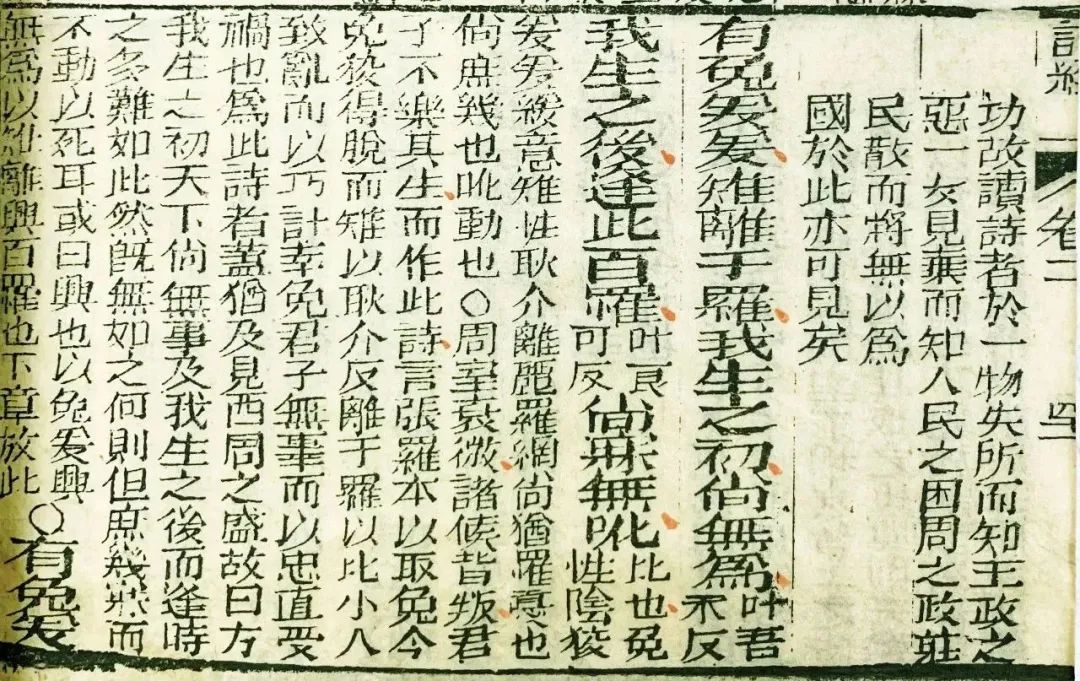 詩經
卷二
四
功故讀詩者於一物失所而知王政之
惡一女見棄而知人民之困周之政荘
民散而將無以爲
國於此亦可見矣
有兔爰爰雉離于羅我生之初尚無爲叶吾禾反
我生之後逢此百羅叶良可反尚寐無吪比也兔性陰狡
爰爰緩意雉性耿介離麗羅網尚猶罹憂也
尚庶幾也吪動也〇周室衰微諸侯皆叛君
子不樂其生而作此詩言張羅本以取兔今
兔狡得脫而雉以耿介反離于羅以比小人
致亂而以巧計幸免君子無辜而以忠直受
禍也爲此詩者蓋猶及見西周之盛故曰方
我生之初天下尚無事及我生之後而逢時
之多難如此然旣無如之何則但庶幾寐而
不動以死耳或曰興也以兔爰興
無爲以雉離興百罹也下章放此〇有兔爰